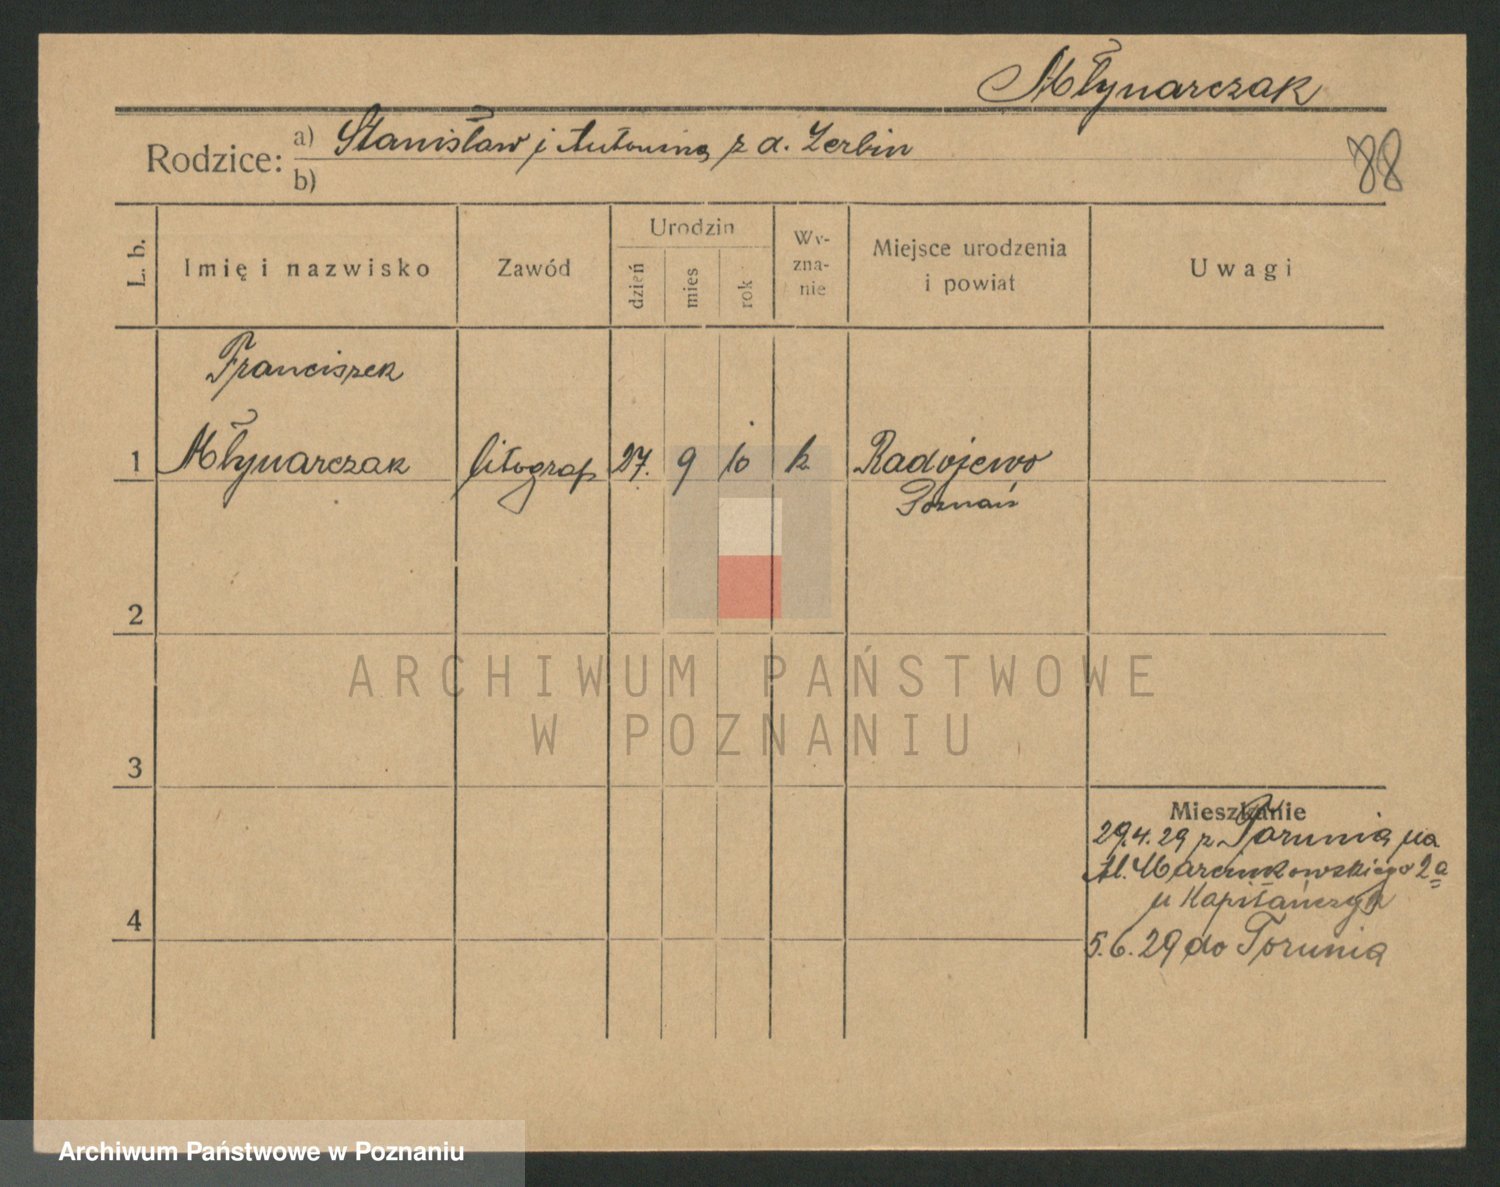 Młynarczak
Rodzice: a) Stanisław i Antonina z d. Zerbin
b)
88
L. b.
Imię i nazwisko
Zawód
Urodzin
dzień
mies
rok
Wy-
zna-
nie
Miejsce urodzenia
i powiat
Uwagi
Franciszek
1 Młynarczak litograf 27. 9 10 k. Radojewo
Poznań
2
3
4
ARCHIWUM PAŃSTWOWE
W POZNANIU
Mieszkanie
29.4.29 z Torunia na
Al. Marcinkowskiego 2a
u Kapitańczyk
5.6.29 do Torunia
Archiwum Państwowe w Poznaniu